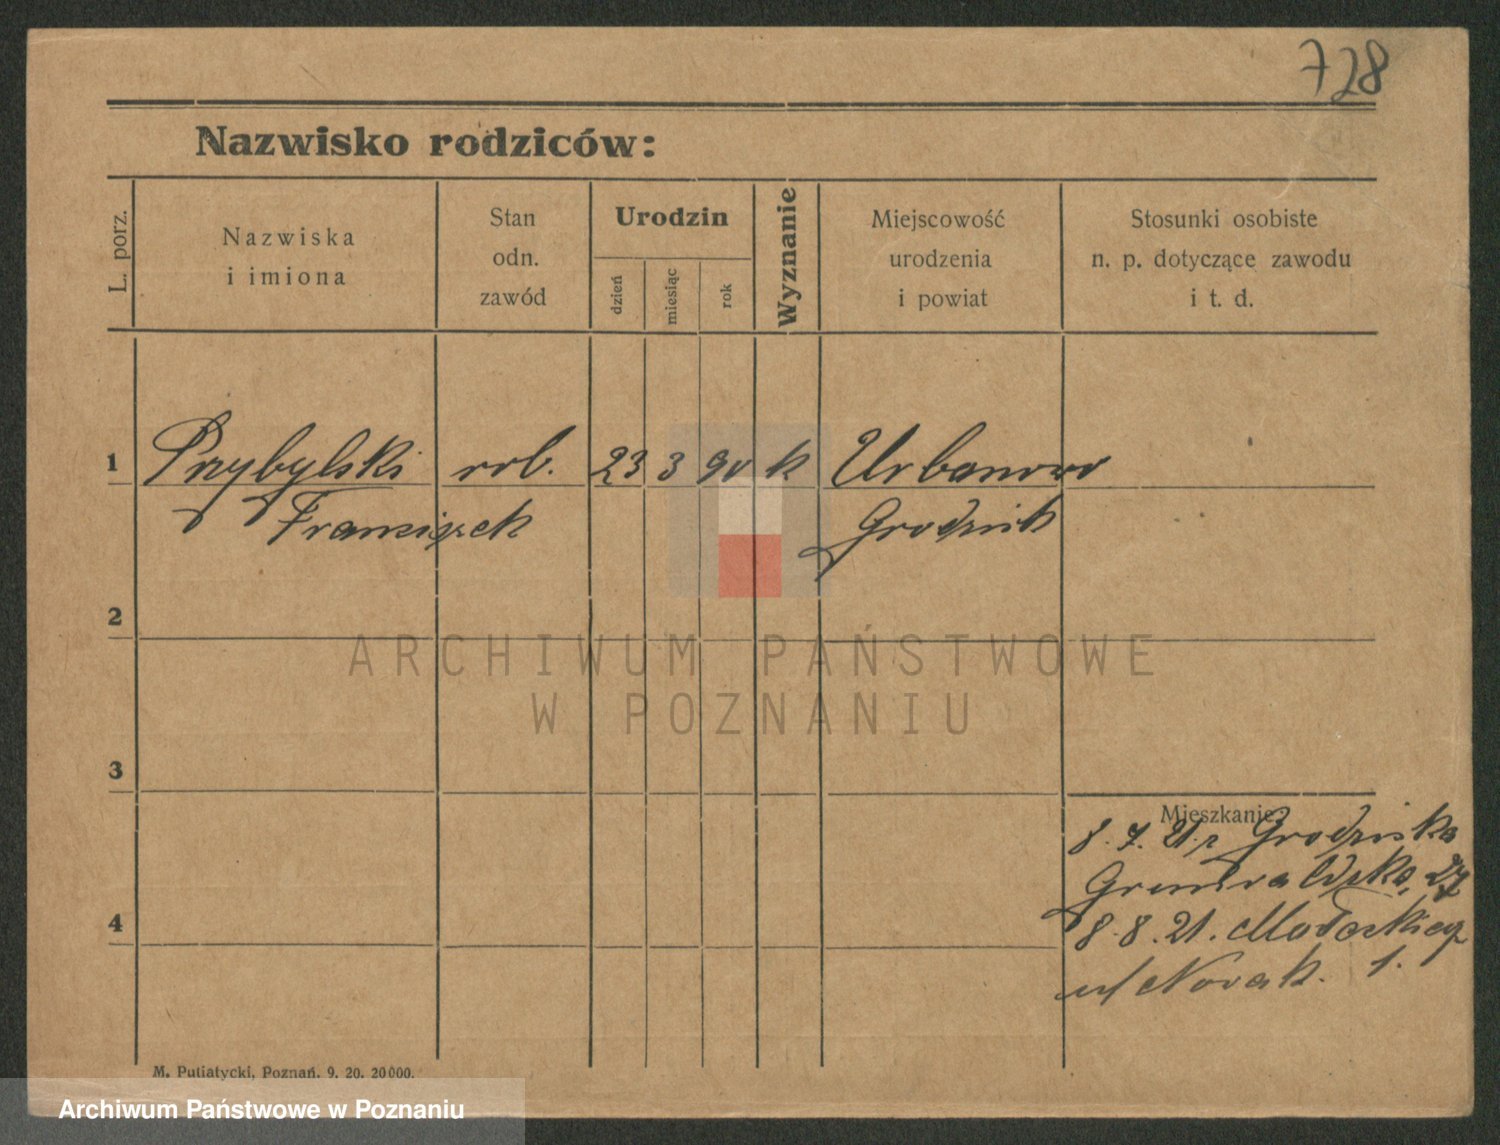 728
Nazwisko rodziców:
L. porz.
Nazwiska
i imiona
Stan
odn.
zawód
Urodzin
dzień
miesiąc
rok
Wyznanie
Miejscowość
urodzenia
i powiat
Stosunki osobiste
n. p. dotyczące zawodu
i t. d.
1 Przybylski rob. 23 3 90 k Urbanowo
Franciszek Grodzisk
2
ARCHIWUM PAŃSTWOWE
W POZNANIU
3
Mieszkanie
8.7.21. z Grodziska
27
4
8.8.21.
Nowak. 1.
M. Putiatycki, Poznań. 9. 20. 20000.
Archiwum Państwowe w Poznaniu